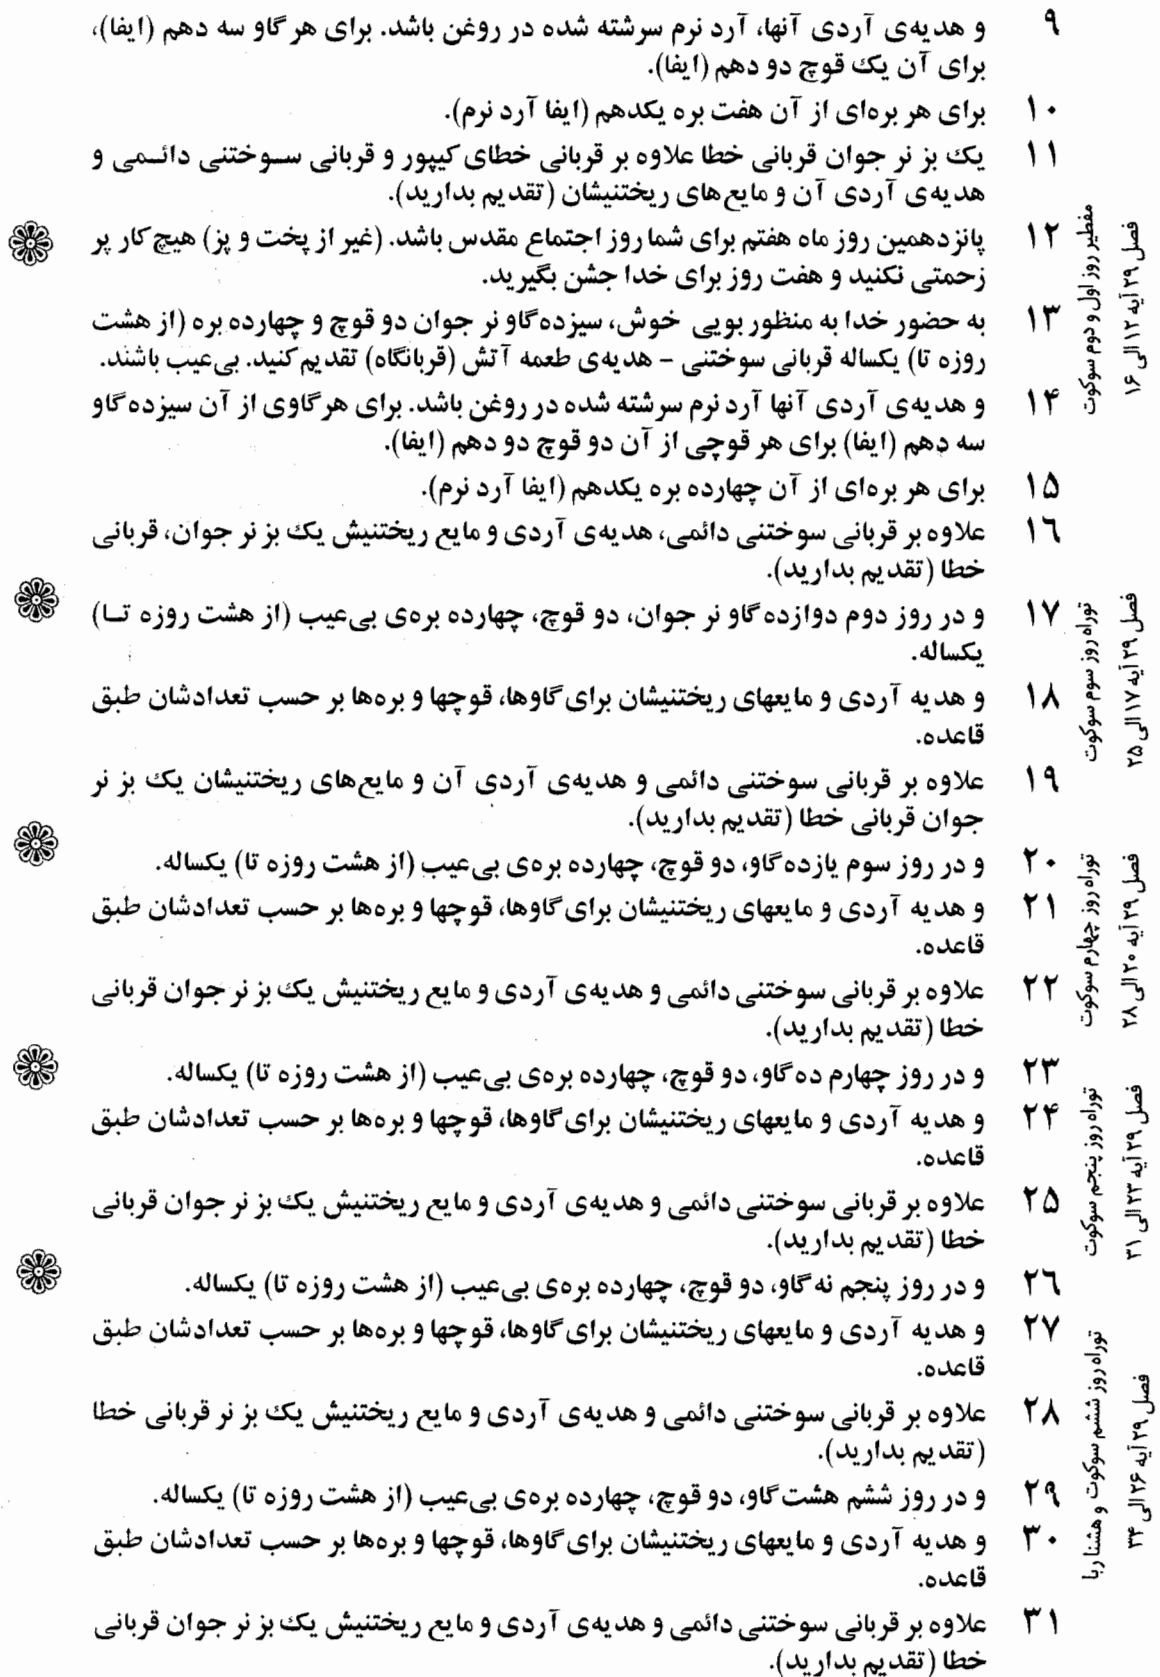 ۹ و هدیه‌ی آردی آنها، آرد نرم سرشته شده در روغن باشد. برای هر گاو سه دهم (ایفا)،
برای آن یک قوچ دو دهم (ایفا).
۱۰ برای هر بره‌ای از آن هفت بره یکدهم (ایفا آرد نرم).
۱۱ یک بز نر جوان قربانی خطا علاوه بر قربانی خطای کیپور و قربانی سـوختنی دائـمی و
هدیه‌ی آردی آن و مایع‌های ریختنیشان (تقدیم بدارید).
۱۲ پانزدهمین روز ماه هفتم برای شما روز اجتماع مقدس باشد. (غیر از پخت و پز) هیچ کار پر
زحمتی نکنید و هفت روز برای خدا جشن بگیرید.
۱۳ به حضور خدا به منظور بویی خوش، سیزده گاو نر جوان دو قوچ و چهارده بره (از هشت
روزه تا) یکساله قربانی سوختنی – هدیه‌ی طعمه آتش (قربانگاه) تقدیم کنید. بی‌عیب باشند.
۱۴ و هدیه‌ی آردی آنها آرد نرم سرشته شده در روغن باشد. برای هر گاوی از آن سیزده گاو
سه دهم (ایفا) برای هر قوچی از آن دو قوچ دو دهم (ایفا).
۱۵ برای هر بره‌ای از آن چهارده بره یکدهم (ایفا آرد نرم).
۱٦ علاوه بر قربانی سوختنی دائمی، هدیه‌ی آردی و مایع ریختنیش یک بز نر جوان، قربانی
خطا (تقدیم بدارید).
مفطیر روز اول و دوم سوکوت
فصل ۲۹ آیه ۱۲ الی ۱۶
۱۷ و در روز دوم دوازده گاو نر جوان، دو قوچ، چهارده بره‌ی بی‌عیب (از هشت روزه تـا)
یکساله.
۱۸ و هدیه آردی و مایعهای ریختنیشان برای گاوها، قوچها و بره‌ها بر حسب تعدادشان طبق
قاعده.
۱۹ علاوه بر قربانی سوختنی دائمی و هدیه‌ی آردی آن و مایع‌های ریختنیشان یک بز نر
جوان قربانی خطا (تقدیم بدارید).
توراه روز سوم سوکوت
فصل ۲۹ آیه ۱۷ الی ۲۵
۲۰ و در روز سوم یازده گاو، دو قوچ، چهارده بره‌ی بی‌عیب (از هشت روزه تا) یکساله.
۲۱ و هدیه آردی و مایعهای ریختنیشان برای گاوها، قوچها و بره‌ها بر حسب تعدادشان طبق
قاعده.
۲۲ علاوه بر قربانی سوختنی دائمی و هدیه‌ی آردی و مایع ریختنیش یک بز نر جوان قربانی
خطا (تقدیم بدارید).
توراه روز چهارم سوکوت
فصل ۲۹ آیه ۲۰ الی ۲۸
۲۳ و در روز چهارم ده گاو، دو قوچ، چهارده بره‌ی بی‌عیب (از هشت روزه تا) یکساله.
۲۴ و هدیه آردی و مایعهای ریختنیشان برای گاوها، قوچها و بره‌ها بر حسب تعدادشان طبق
قاعده.
۲۵ علاوه بر قربانی سوختنی دائمی و هدیه‌ی آردی و مایع ریختنیش یک بز نر جوان قربانی
خطا (تقدیم بدارید).
توراه روز پنجم سوکوت
فصل ۲۹ آیه ۲۳ الی ۳۱
۲٦ و در روز پنجم نه گاو، دو قوچ، چهارده بره‌ی بی‌عیب (از هشت روزه تا) یکساله.
۲۷ و هدیه آردی و مایعهای ریختنیشان برای گاوها، قوچها و بره‌ها بر حسب تعدادشان طبق
قاعده.
۲۸ علاوه بر قربانی سوختنی دائمی و هدیه‌ی آردی و مایع ریختنیش یک بز نر قربانی خطا
(تقدیم بدارید).
۲۹ و در روز ششم هشت گاو، دو قوچ، چهارده بره‌ی بی‌عیب (از هشت روزه تا) یکساله.
۳۰ و هدیه آردی و مایعهای ریختنیشان برای گاوها، قوچها و بره‌ها بر حسب تعدادشان طبق
قاعده.
توراه روز ششم سوکوت و هشنا ربا
فصل ۲۹ آیه ۲۶ الی ۳۴
۳۱ علاوه بر قربانی سوختنی دائمی و هدیه‌ی آردی و مایع ریختنیش یک بز نر جوان قربانی
خطا (تقدیم بدارید).